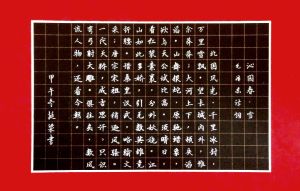 沁园春 雪
毛泽东诗词
北国风光,千里冰封,
万里雪飘。望长城内外,惟
余莽莽;大河上下,顿失滔
滔。山舞银蛇,原驰蜡象,
欲与天公试比高。须晴日,
看红装素裹,分外妖娆。江
山如此多娇,引无数英雄竞
折腰。惜秦皇汉武,略输文
采;唐宗宋祖,稍逊风骚。
一代天骄,成吉思汗,只识
弯弓射大雕。俱往矣,数风
流人物,还看今朝。
甲午冬 书